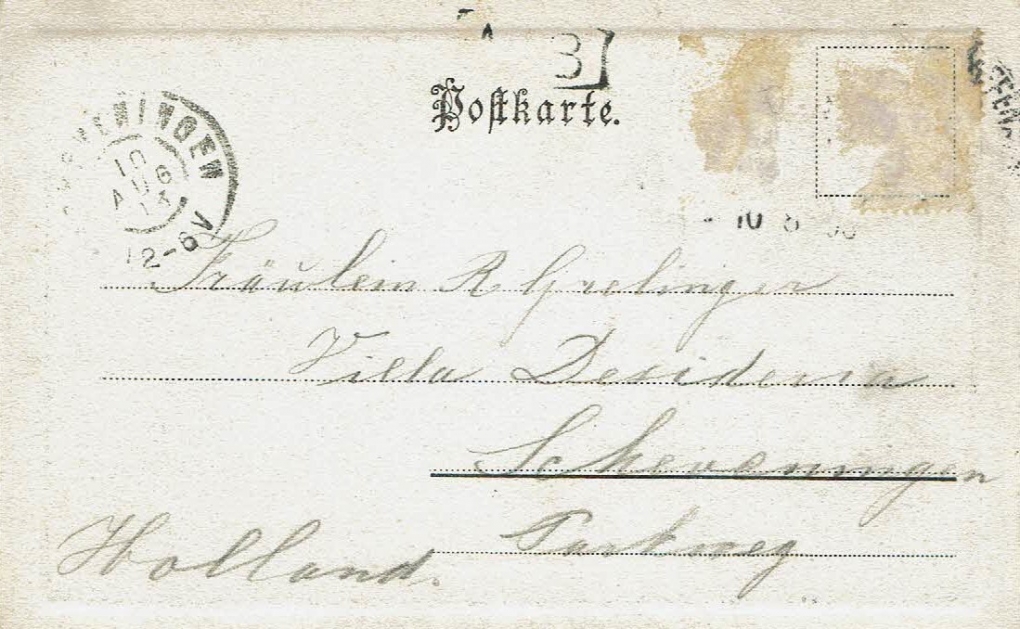 B
Postkarte.
SCHEVENINGEN
10
AUG
12-6V
10 8
Fräulein R Grelinger
Villa Desideria
Scheveningen
Parkweg
Holland.